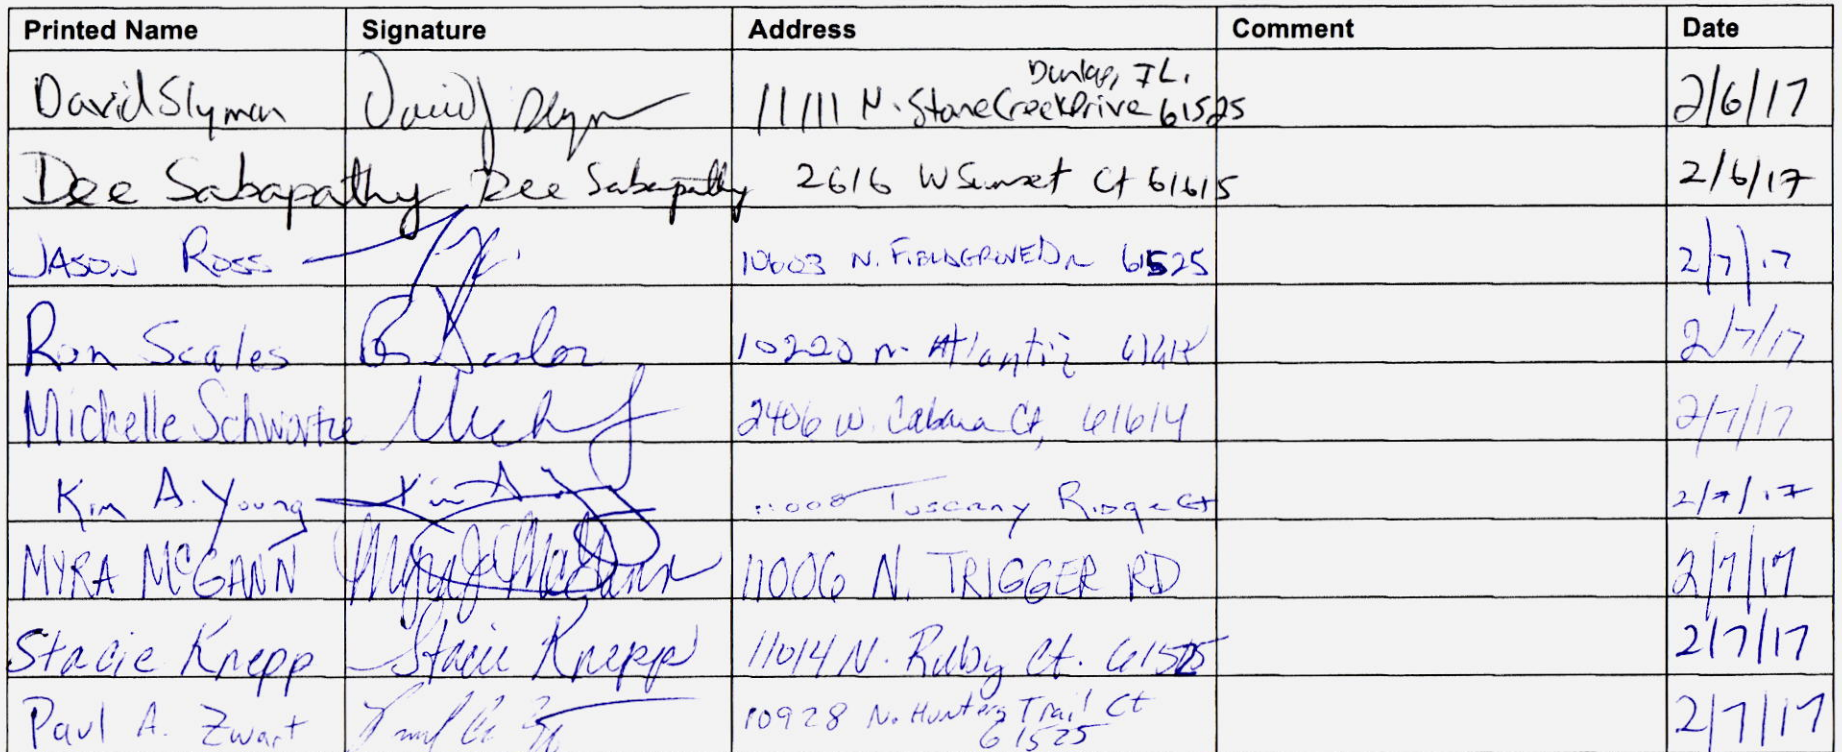 Printed Name Signature Address Comment Date
Dunlap, IL.
David Slyman David Slyman 11111 N. Stone Creek Drive 61525 2/6/17
Dee Sabapathy Dee Sabapathy 2616 W Sunset Ct 61615 2/6/17
JASON ROSS 10603 N. FIELDGROVE DR 61525 2/7/17
Ron Scales 10220 N. Atlantic 2/7/17
Michelle Schwartze 2406 W. Cabana Ct, 61614 2/7/17
Kim A. Young Kim A 11008 Tuscany Ridge Ct 2/7/17
MYRA McGANN Myra J McGann 11006 N. TRIGGER RD 2/7/17
Stacie Knepp Stacie Knepp 11014 N. Ruby Ct. 61525 2/7/17
Paul A. Zwart 10928 N. Hunters Trail Ct 2/7/17
61525